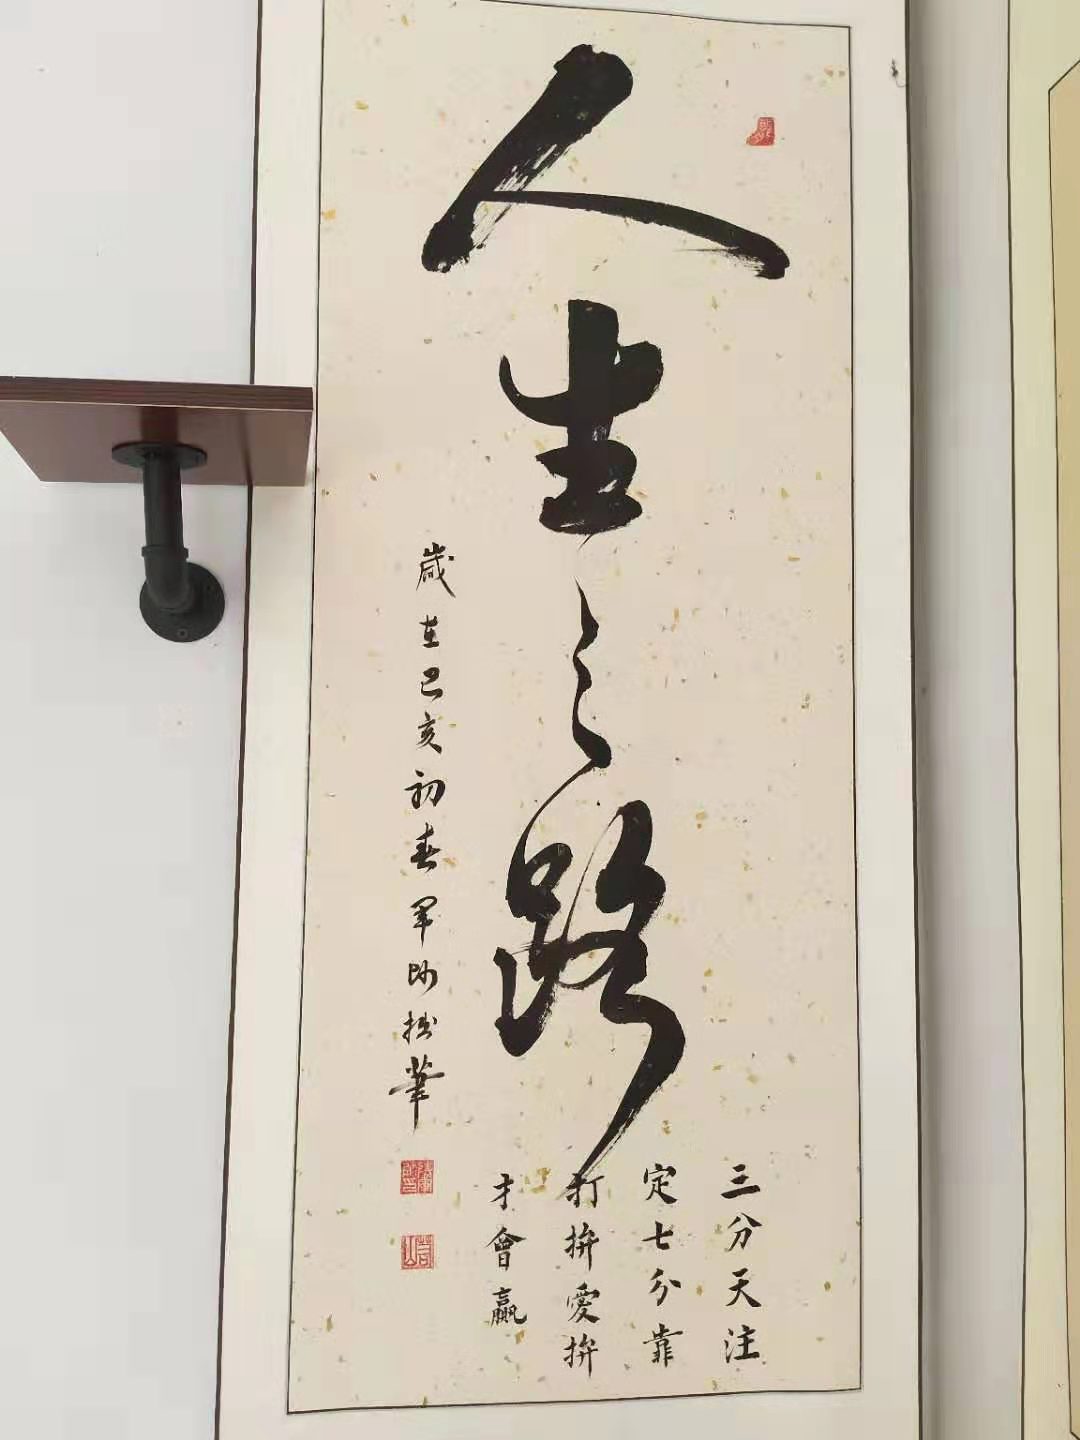 人生之路
三分天注
定七分靠
打拚愛拚
才會贏
歲在己亥初春軍帥拙筆